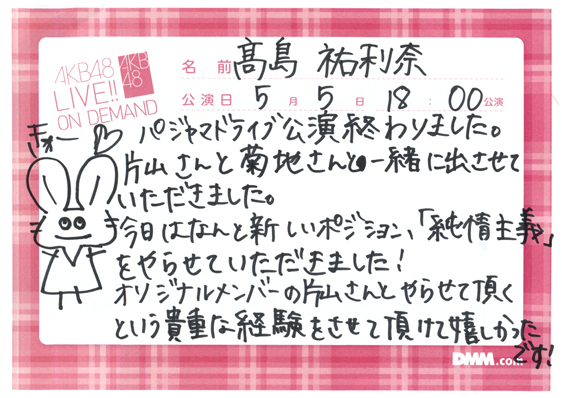 AKB48
LIVE!!
ON DEMAND
AKB
48
名前 髙島 祐利奈
公演日 5月5日 18:00公演
パジャマドライブ公演終わりました。
片山さんと菊地さんと一緒に出させて
いただきました。
今日はなんと新しいポジション、「純情主義」
をやらせていただきました!
オリジナルメンバーの片山さんとやらせて頂く
という貴重な経験をさせて頂けて嬉しかった
です!
DMM.com